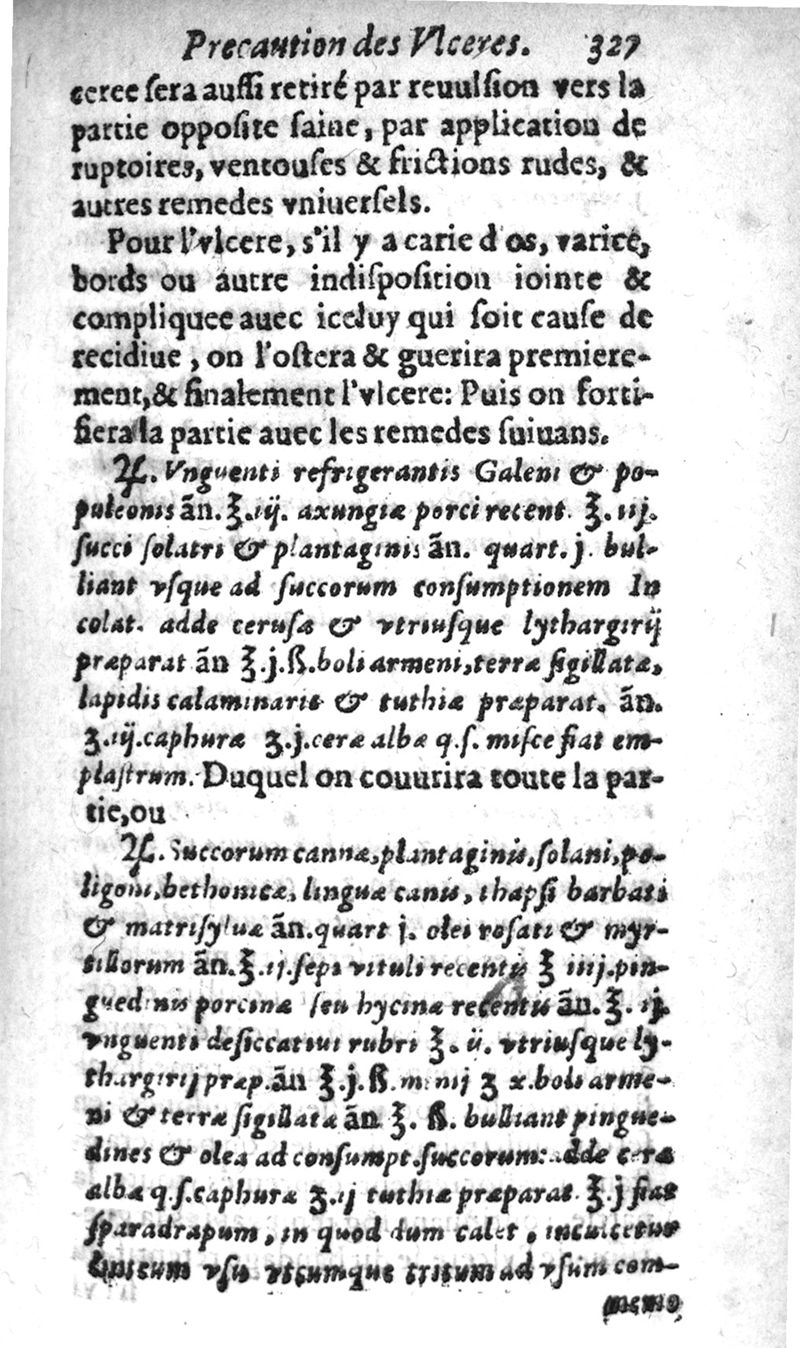 Precaution des Vlceres. 327
ceree sera aussi retiré par reuulsion vers la
partie opposite saine, par application de
ruptoires, ventouses & frictions rudes, &
autres remedes vniuersels.
Pour l'vlcere, s'il y a carie d'os, varice,
bords ou autre indisposition iointe &
compliquee auec iceluy qui soit cause de
recidiue, on l'ostera & guerira premiere-
ment, & finalement l'vlcere: Puis on forti-
fiera la partie auec les remedes suiuans.
♃. Vnguenti refrigerantis Galeni & po-
puleonis ãn. ℥.iij. axungiæ porci recent. ℥.iij.
succi solatri & plantaginis ãn. quart. j. bul-
liant vsque ad succorum consumptionem In
colat. adde cerusæ & vtriusque lythargirij
præparat ãn ℥.j.ß. boli armeni, terræ sigillatæ,
lapidis calaminaris & tuthiæ præparat. ãn.
ʒ.iij. caphuræ ʒ.j. ceræ albæ q.s. misce fiat em-
plastrum. Duquel on couurira toute la par-
tie, ou
♃. Succorum cannæ, plantaginis, solani, po-
ligoni, bethonicæ, linguæ canis, thapsi barbati
& matrisyluæ ãn. quart j. olei rosati & myr-
tillorum ãn. ℥.ij. sepi vituli recentis ℥ iiij. pin-
guedinis porcinæ seu hycinæ recentis ãn. ℥. ij.
vnguenti desiccatiui rubri ℥. ii. vtriusque ly-
thargirij præp. ãn ℥.j.ß. minij ʒ x. boli arme-
ni & terræ sigillatæ ãn ℥. ß. bulliant pingue-
dines & olea ad consumpt. succorum: adde ceræ
albæ q.s. caphuræ ʒ.ij tuthiæ præparat. ℥.j fiat
sparadrapum, in quod dum calet, inculcetur
linteum vsu vtcumque tritum ad vsum com-
memo